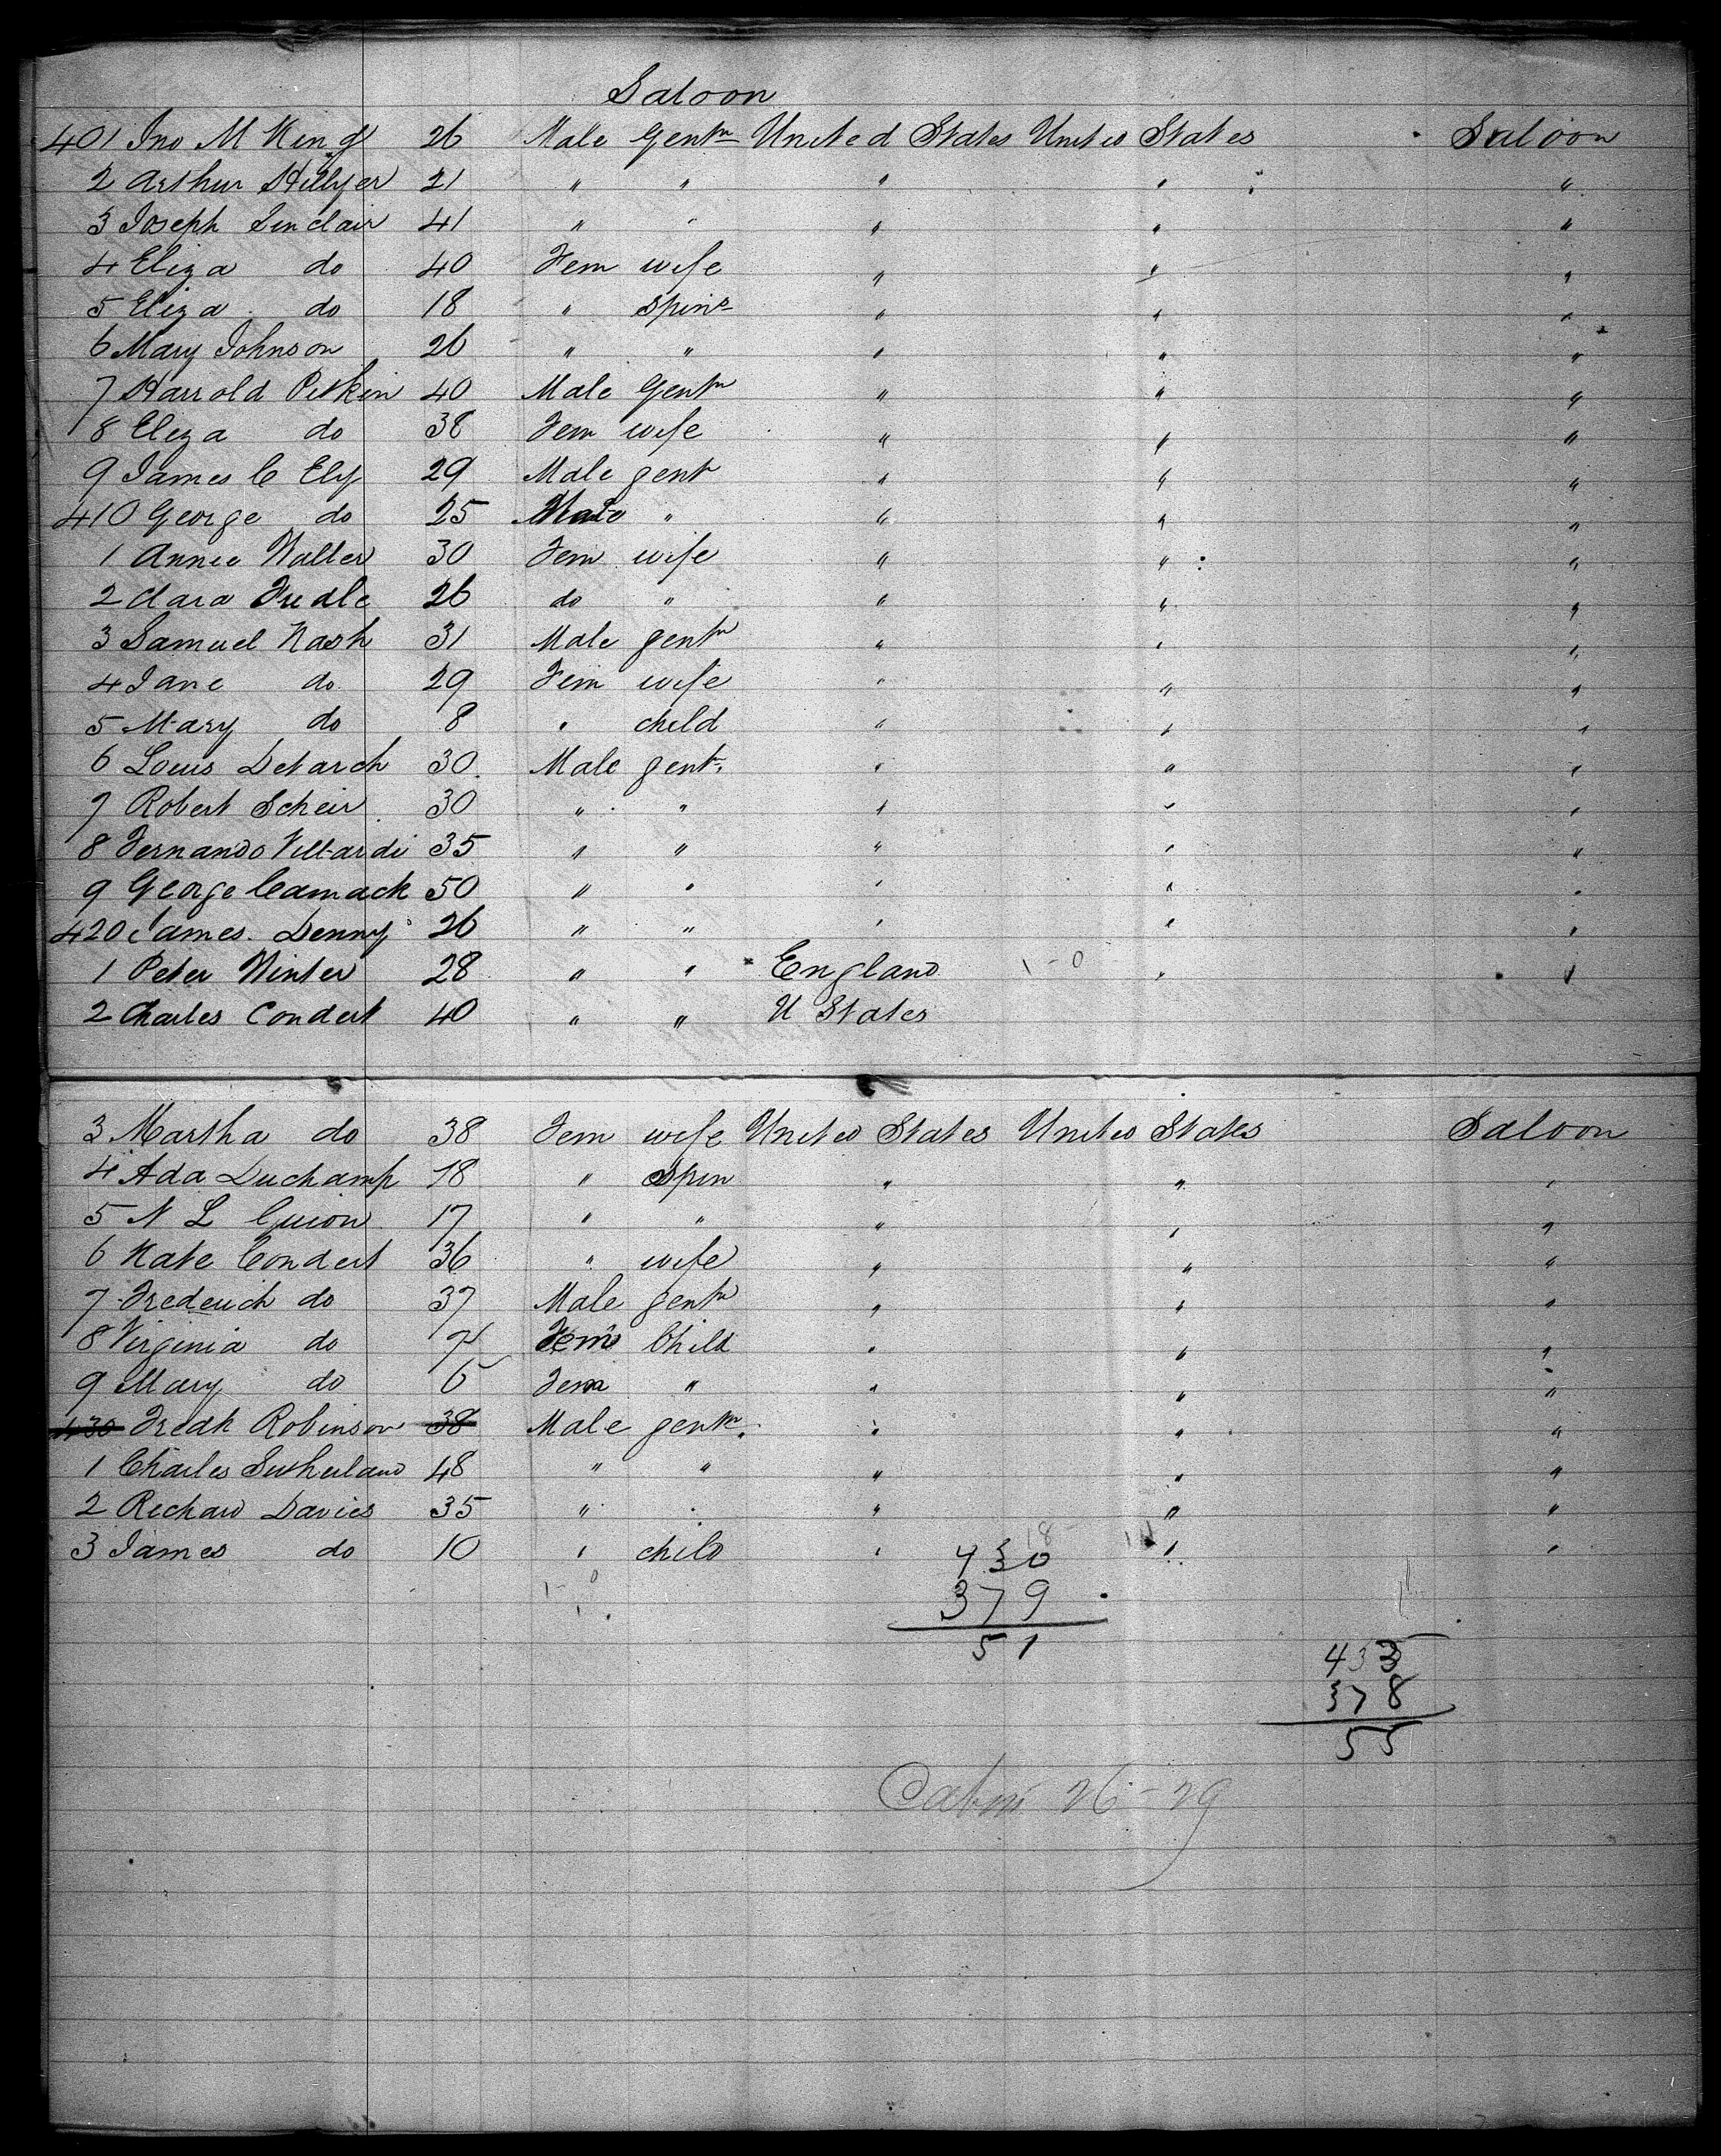 Saloon
401 Jno M King 26 Male Gentn United States United States Saloon
2 Arthur Hillyer 21 " " " " "
3 Joseph Sinclair 41 " " " " "
4 Eliza do 40 Fem wife " " "
5 Eliza do 18 " spinr " " "
6 Mary Johnson 26 " " " " "
7 Harrold Pitkin 40 Male Gentn " " "
8 Eliza do 38 Fem wife " " "
9 James C Ely 29 Male gent " " "
410 George do 25 Male " " " "
1 Annie Walter 30 Fem wife " " "
2 Clara 26 do " " " "
3 Samuel Nash 31 Male gentn " " "
4 Jane do 29 Fem wife " " "
5 Mary do 8 " child " " "
6 Louis 30 Male gentn " " "
7 Robert Scheir 30 " " " " "
8 Fernando 35 " " " " "
9 George Camack 50 " " " " "
420 James Denny 26 " " " " "
1 Peter Winter 28 " " England 1-0 " "
2 Charles Condert 40 " " U States
3 Martha do 38 Fem wife United States United States Saloon
4 Ada Duchamp 18 " spin " " "
5 N L Guion 17 " " " " "
6 Kate Condert 36 " wife " " "
7 Frederich do 37 Male gentn " " "
8 Virginia do 7 Fem Child " " "
9 Mary do Fem " " " "
430 Fredk Robinson 38 Male gentn " " "
1 Charles Sutherland 48 " " " " "
2 Richard Davies 35 " " " " "
3 James do 10 " child " " "
430
379
51
433
378
55
Cabin 26-29